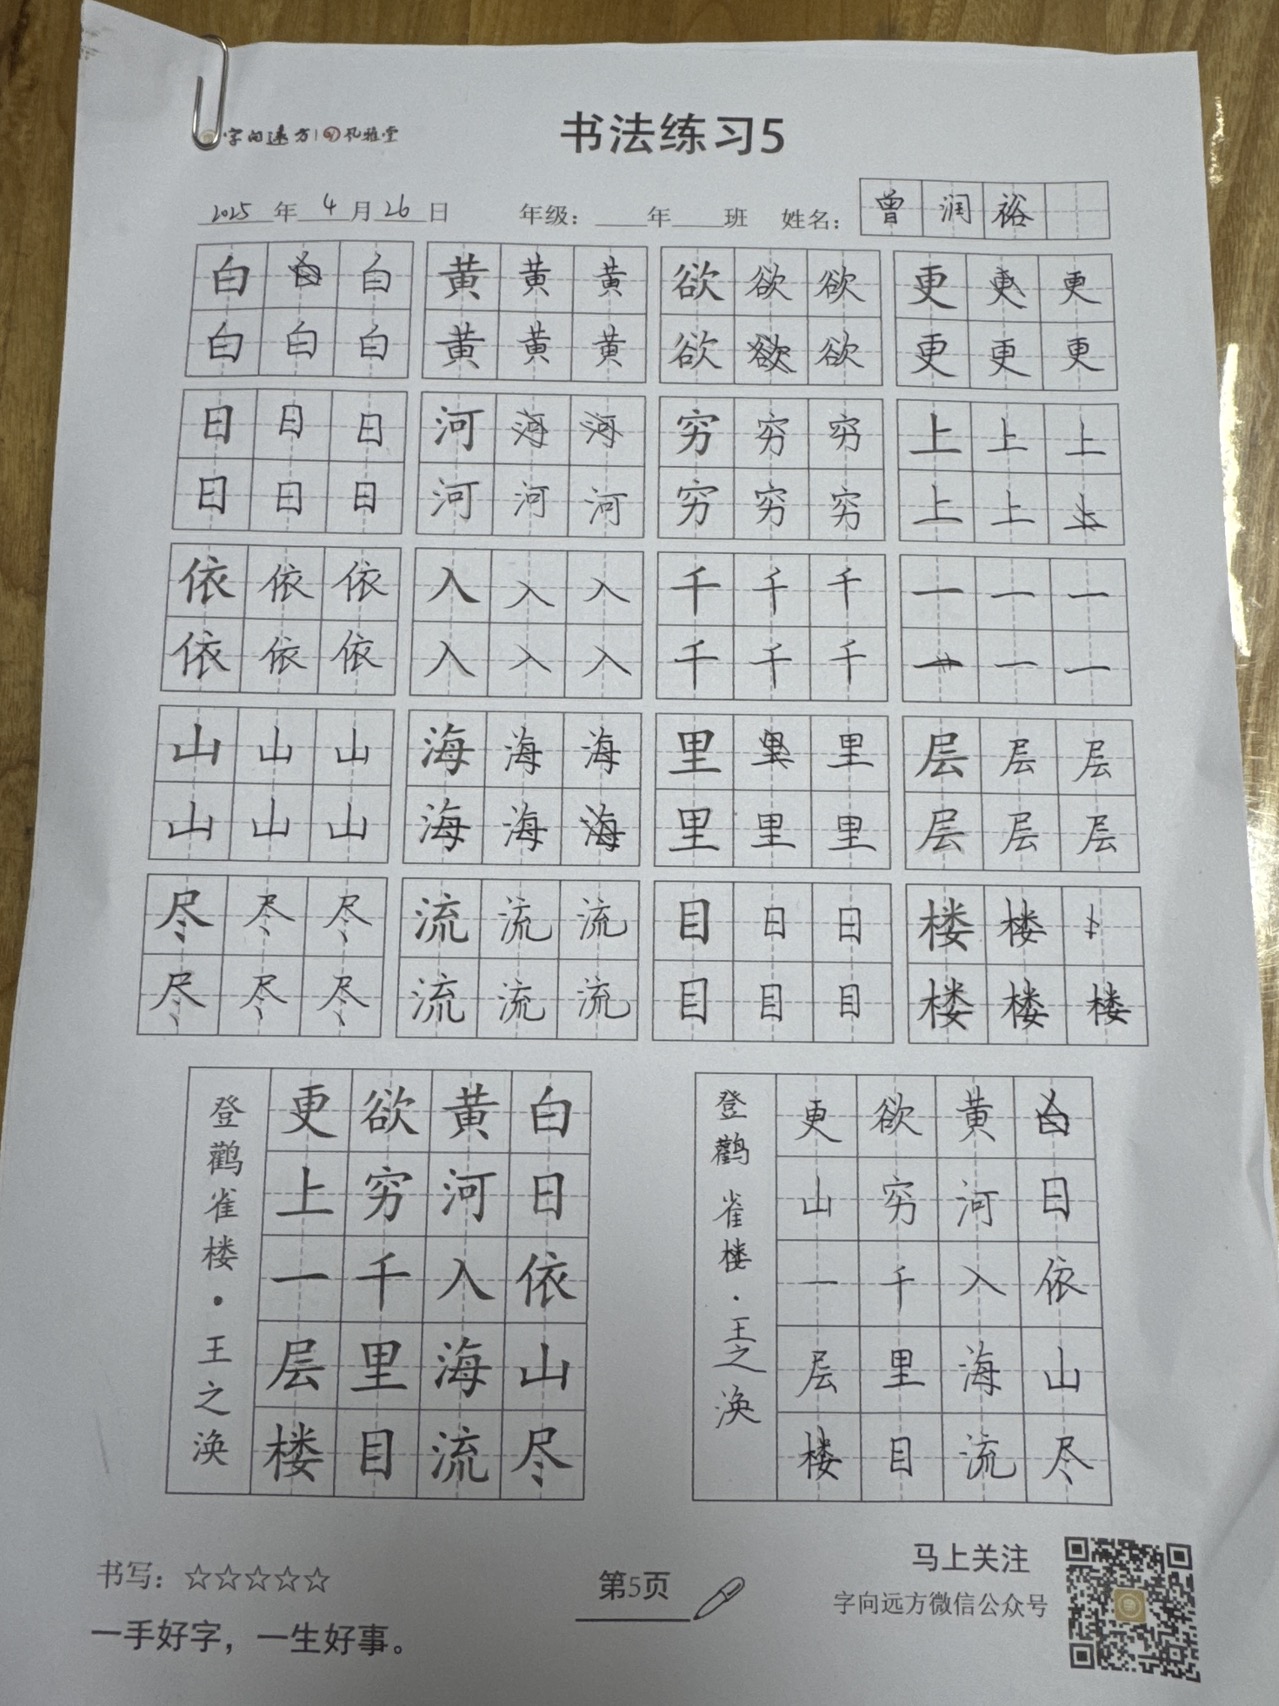 字向远方 孔雅堂
书法练习5
2025年4月26日 年级：年班 姓名：曾润裕
白 白 黄黄黄 欲欲欲 更 更
白白白 黄黄黄 欲 欲 更更更
日日日 河 穷穷穷 上上上
日日日 河河河 穷穷穷 上上
依依依 入入入 千千千 一一一
依依依 入入入 千千千 一一
山山山 海海海 里 里 层层层
山山山 海海 里里里 层层层
尽尽尽 流流流 目日日 楼楼
尽尽尽 流流流 目目目 楼楼楼
登鹳雀楼·王之涣
白日依山尽
黄河入海流
欲穷千里目
更上一层楼
登鹳雀楼·王之涣
日依山尽
黄河入海流
欲穷千里目
更山一层楼
书写：☆☆☆☆☆
一手好字，一生好事。
第5页
马上关注
字向远方微信公众号